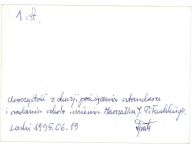 1 szt.
Uroczystość z okazji poświęcenia sztandaru
i nadania szkole imienia Marszałka J. Piłsudskiego.
1995.06.19